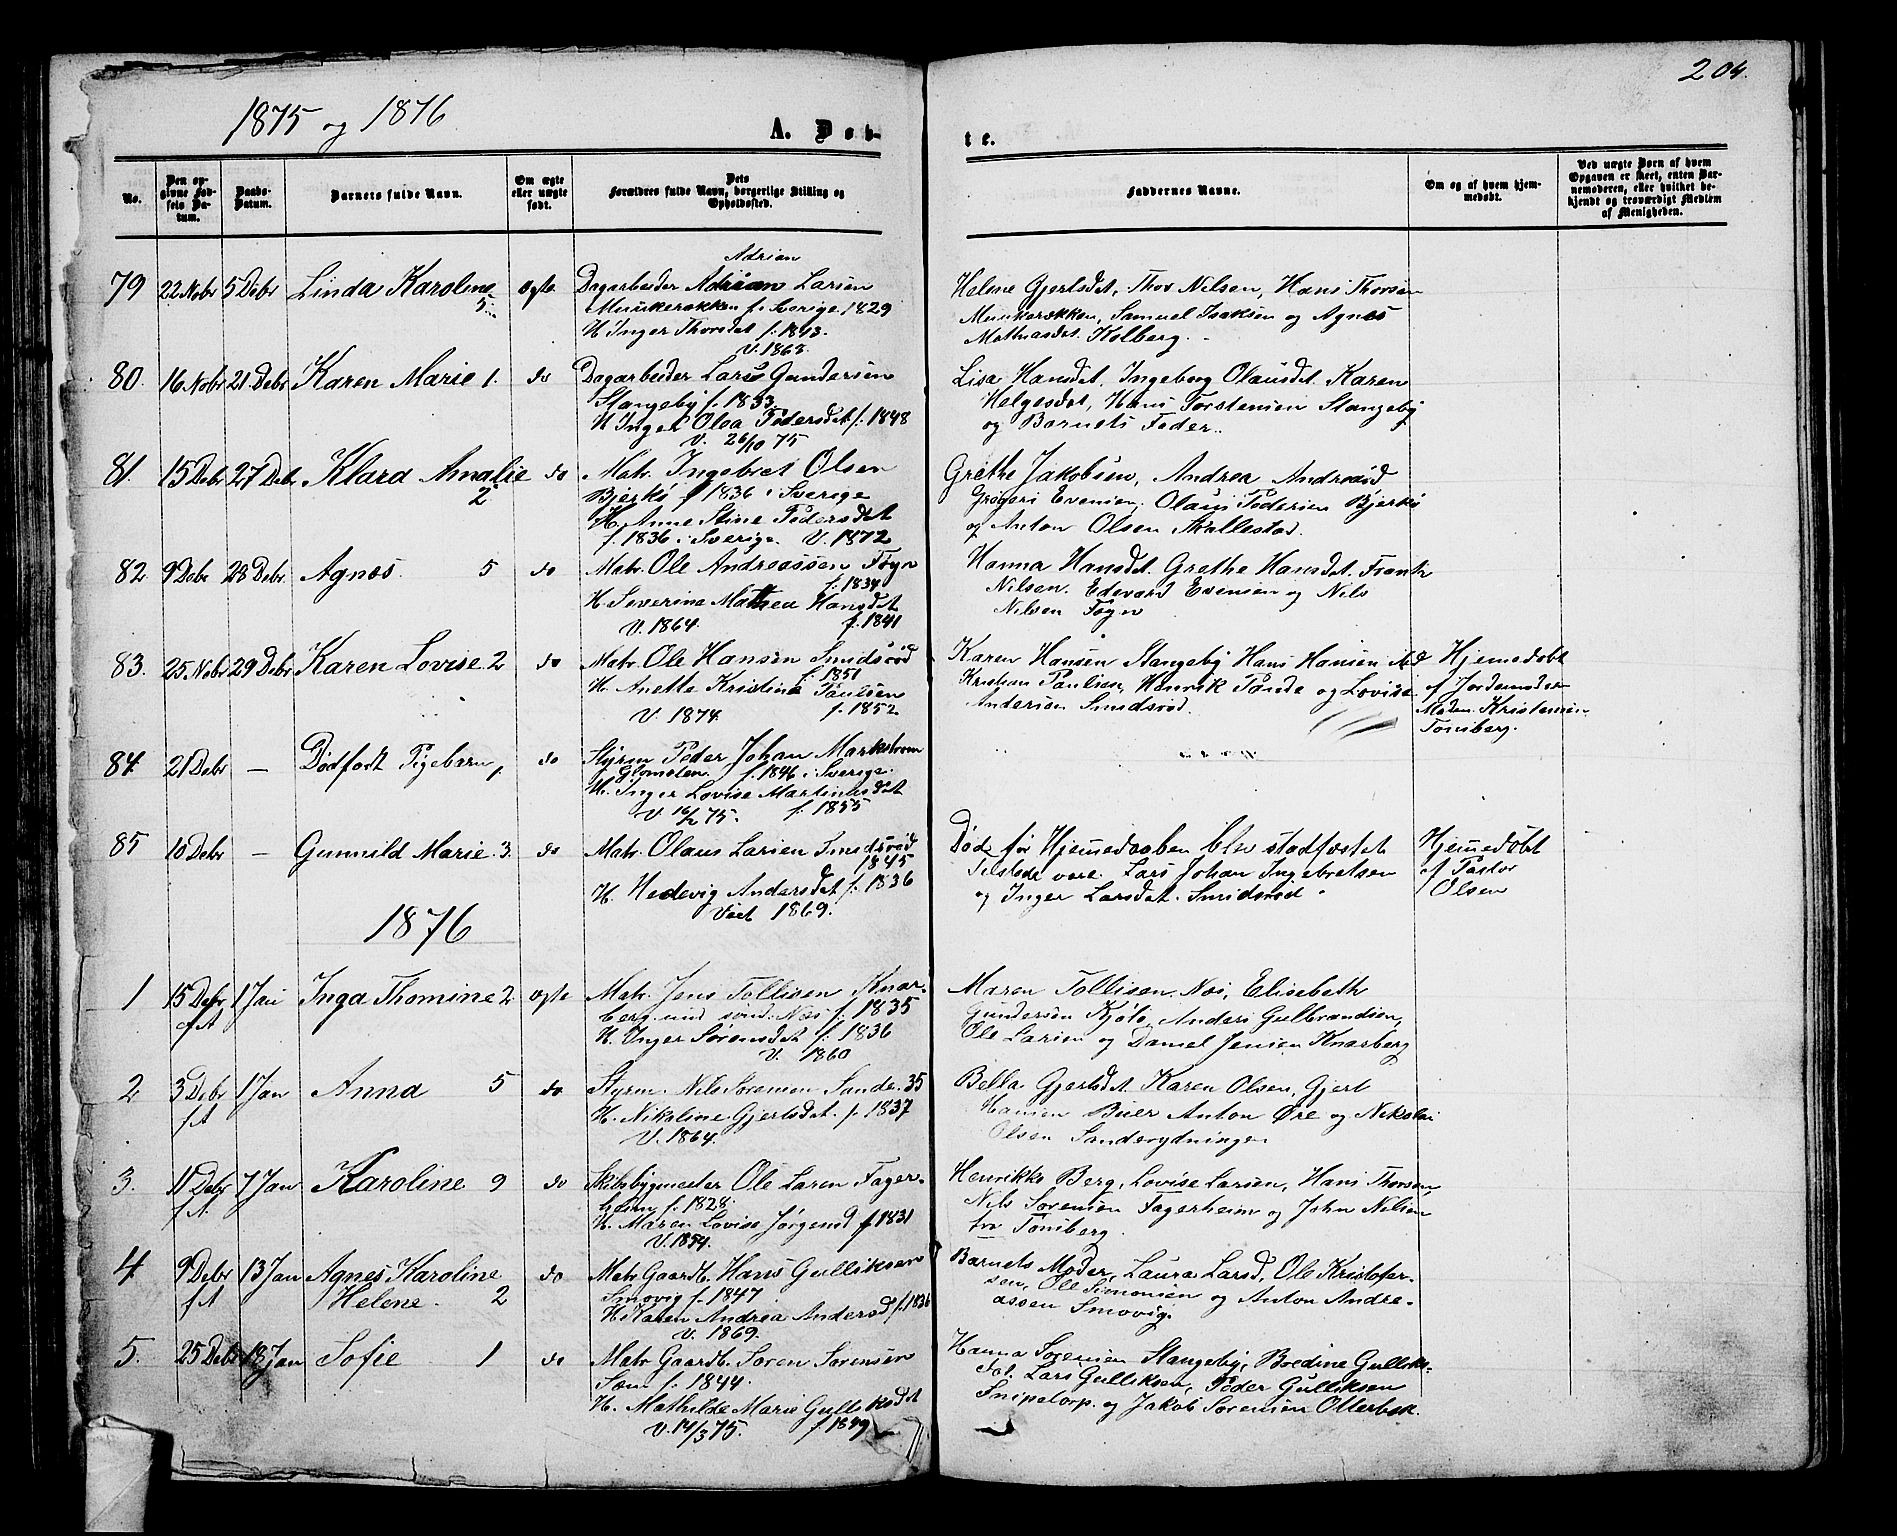 204.
1875 og 1876
A. Døb-
te.
No.
Den op-
givne Fød-
sels Da-
tum.
Daabs-
Datum.
Barnets fulde Navn.
Om ægte
eller uægte
født.
Dets
Forældres fulde Navn, borgerlige Stilling og
Opholdssted.
Faddernes Navne.
Om og af hvem hjem-
medøbt.
Ved uægte Børn af hvem
Opgaven er skeet, enten Bar-
nemoderen, eller hvilket be-
kjendt og troværdigt Medlem
af Menigheden.
79 22 Nobr 5 Debr Linda Karoline 5. ægte
Adrian
Dagarbeider Adrian Larsen
Munkerækken f. Sverige 1829
H. Inger Thorsdet f. 1843.
V. 1863.
Helene Gjertsdet, Thor Nilsen, Hans Thorsen
Munkerækken, Samuel Isaksen og Agnes
Mathiasdet. Kolberg.
80. 16 Nobr 21 Debr Karen Marie 1. do
Dagarbeider Lars Gundersen
Stangeby f. 1833.
H. Inger Olea Pedersdet f. 1848
V. 26/10 75
Lisa Hansdet, Ingeborg Olausdet. Karen
Helgesdet, Hans Torstensen Stangeby
og Barnets Fader.
81. 15 Debr 27 Debr Klara Amalie 2 do
Matr. Ingebret Olsen
Bjerkø f 1836 i Sverige
H. Anne Stine Pedersdet
f. 1836 i Sverige. V. 1872
Grethe Jakobsen, Andrea Andreasd
Gregers Evensen, Olaus Pedersen Bjerkø
og Anton Olsen Skallestad.
82 9 Debr 28 Debr. Agnes. 5 do
Matr. Ole Andreassen Føyn
f. 1834
H. Severine Mathea Hansdet
V. 1864. f. 1841
Hanna Hansdt. Grethe Hansdet. Frantz
Nilsen. Edevard Evensen og Nils
Nilsen Føyn
83. 25 Nobr 29 Debr Karen Lovise 2 do
Matr. Ole Hansen Smidsrød
f. 1851
H. Anette Kristine Paulsen
V. 1874. f. 1852
Karen Hansen Stangeby Hans Hansen
Kristian Paulsen, Henrik og Lovise
Andersen Smidsrød.
Hjemedøbt
af Jordemoder
Madm. Kristensen
Tønsberg.
84. 21 Debr — Dødfødt Pigebarn 1 do
Styrm Peder Johan Markstrøm
Glomsten. f. 1846 i Sverige.
H. Inger Lovise Martinusdet
V 75. f. 1855
85 10 Debr — Gunnild Marie. 3. do
Matr. Olaus Larsen Smidsrød
1845
H. Hedevig Andersdet f. 1836
Viet 1869.
Døde før Hjemedaaben blev stadfæstet
Tilstede vare. Lars Johan Ingebretsen
og Inger Larsdet. Smidsrød
Hjemedøbt
af Pastor
Olsen
1876
1 15 Debr f.A 1 Jan Inga Thomine 2 ægte
Matr. Jens Tollisen Knar-
berg f. 1835
H. Inger Sørensdet f. 1836
V. 1860
Maren Tollisen. Næs, Elisebeth
Gundersen Kjøle Anders Gulbrandsen,
Ole Larsen og Daniel Jensen Knarberg
2 3 Debr f.A 1 Jan Anna 5 do
Styrm. Nils Sørensen Sande. 35
H. Nikoline Gjertsdet. f. 1837
V. 1864.
Bella Gjertsdet. Karen Olsen, Gjert
Hansen Buer Anton Øre og Nikolai
Olsen Sanderydningen
3. 11 Debr f.A. 7 Jan Karoline 9 do
Skibsbygmester Ole Larsen Fager-
heim f. 1828.
H. Maren Lovise Jørgensd f 1831
V. 1854.
Henrikke Berg, Lovise Larsen, Hans Thorsen,
Nils Sørensen Fagerheim og John Nilsen
fra Tønsberg.
4. 9 Debr f.A 13 Jan Agnes Karoline
Helene. 2 do
Matr Gaardb. Hans Gulliksen
Smovig f. 1847
H. Karen Andrea Andersd f. 1836
V. 1869.
Barnets Moder, Laura Larsd, Ole Kristofer-
sen, Ole Simonsen og Anton Andre-
assen Smovig.
5. 25 Debr 18 Jan Sofie 1 do
Matr Gaardb. Søren Sørensen
Sæm f. 1844.
H. Mathilde Marie Gulliksdet
V. 14/3 75. f. 1849
Hanna Sørensen Stangeby, Bredine Gulliks-
Lars Gulliksen, Peder Gulliksen
Snipetorp. og Jakob Sørensen Otterbæk.